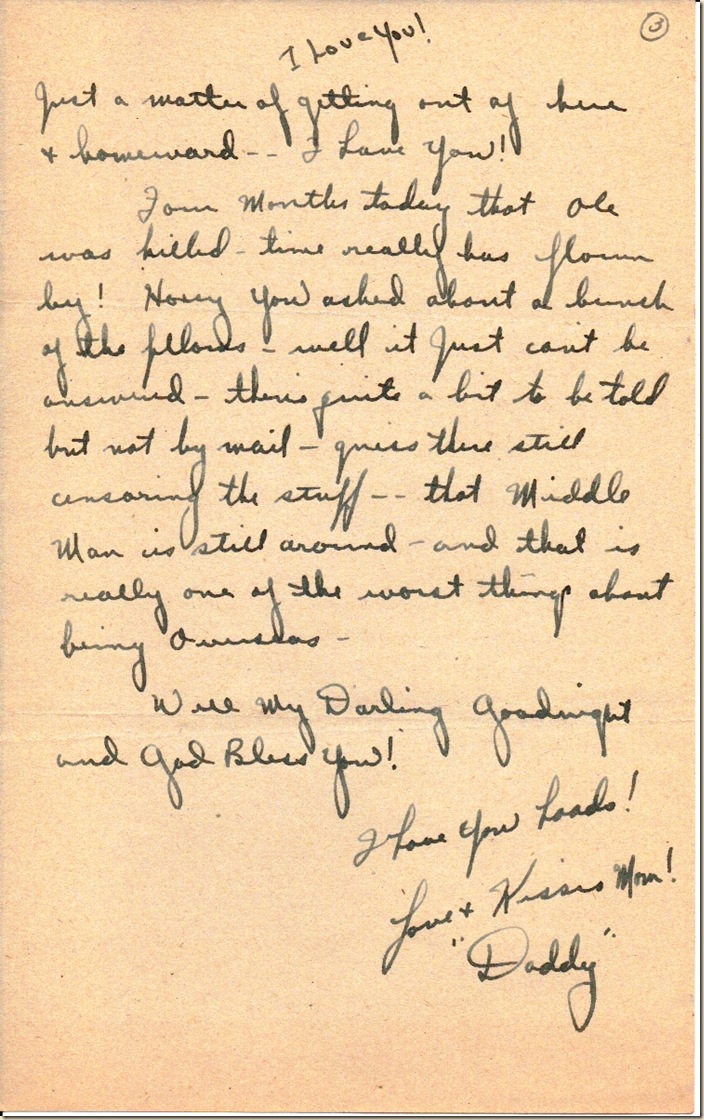 3
I Love You!
Just a matter of getting out of here
+ homeward -- I Love You!
Four Months today that Ole
was killed - time really has flown
by! Honey You asked about a bunch
of the fellows - well it Just cant be
answered - theris quite a bit to be told
but not by mail - guess there still
censoring the stuff -- that Middle
Man is still around - and that is
really one of the worst things about
being Overseas -
Well My Darling Goodnight
and God Bless You!
I Love You Loads!
Love + Kisses Mom!
"Daddy"